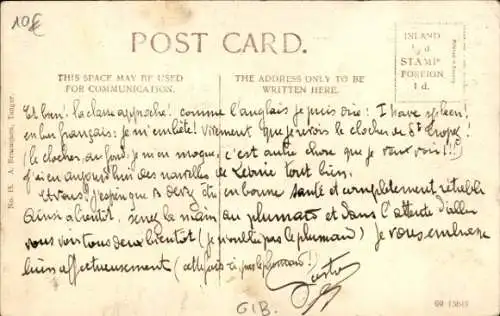 10€
POST CARD.
INLAND
½d
STAMP
FOREIGN
1d.
THIS SPACE MAY BE USED
FOR COMMUNICATION.
THE ADDRESS ONLY TO BE
WRITTEN HERE.
Et bien! la classe approche! comme l'anglais je puis dire: I have spleen!
en bon français: je m'embête! Vivement que je revois le clocher de St Tropez
(le clocher, au fond, je m'en moque, c'est autre chose que je veux voir!!!)
J'ai eu aujourd'hui des nouvelles de Léonie tout bien.
Et vous? J'espère que en bonne santé et complètement rétabli
Ainsi à bientôt, serrez la main au plumard et dans l'attente d'aller
vous voir tous deux bientôt (je n'oublie pas le plumard) je vous embrasse
bien affectueusement (cette fois-ci, pas le plumard!)
GIB.
No. 13. A. Benzaquen, Tangier.
99 13649